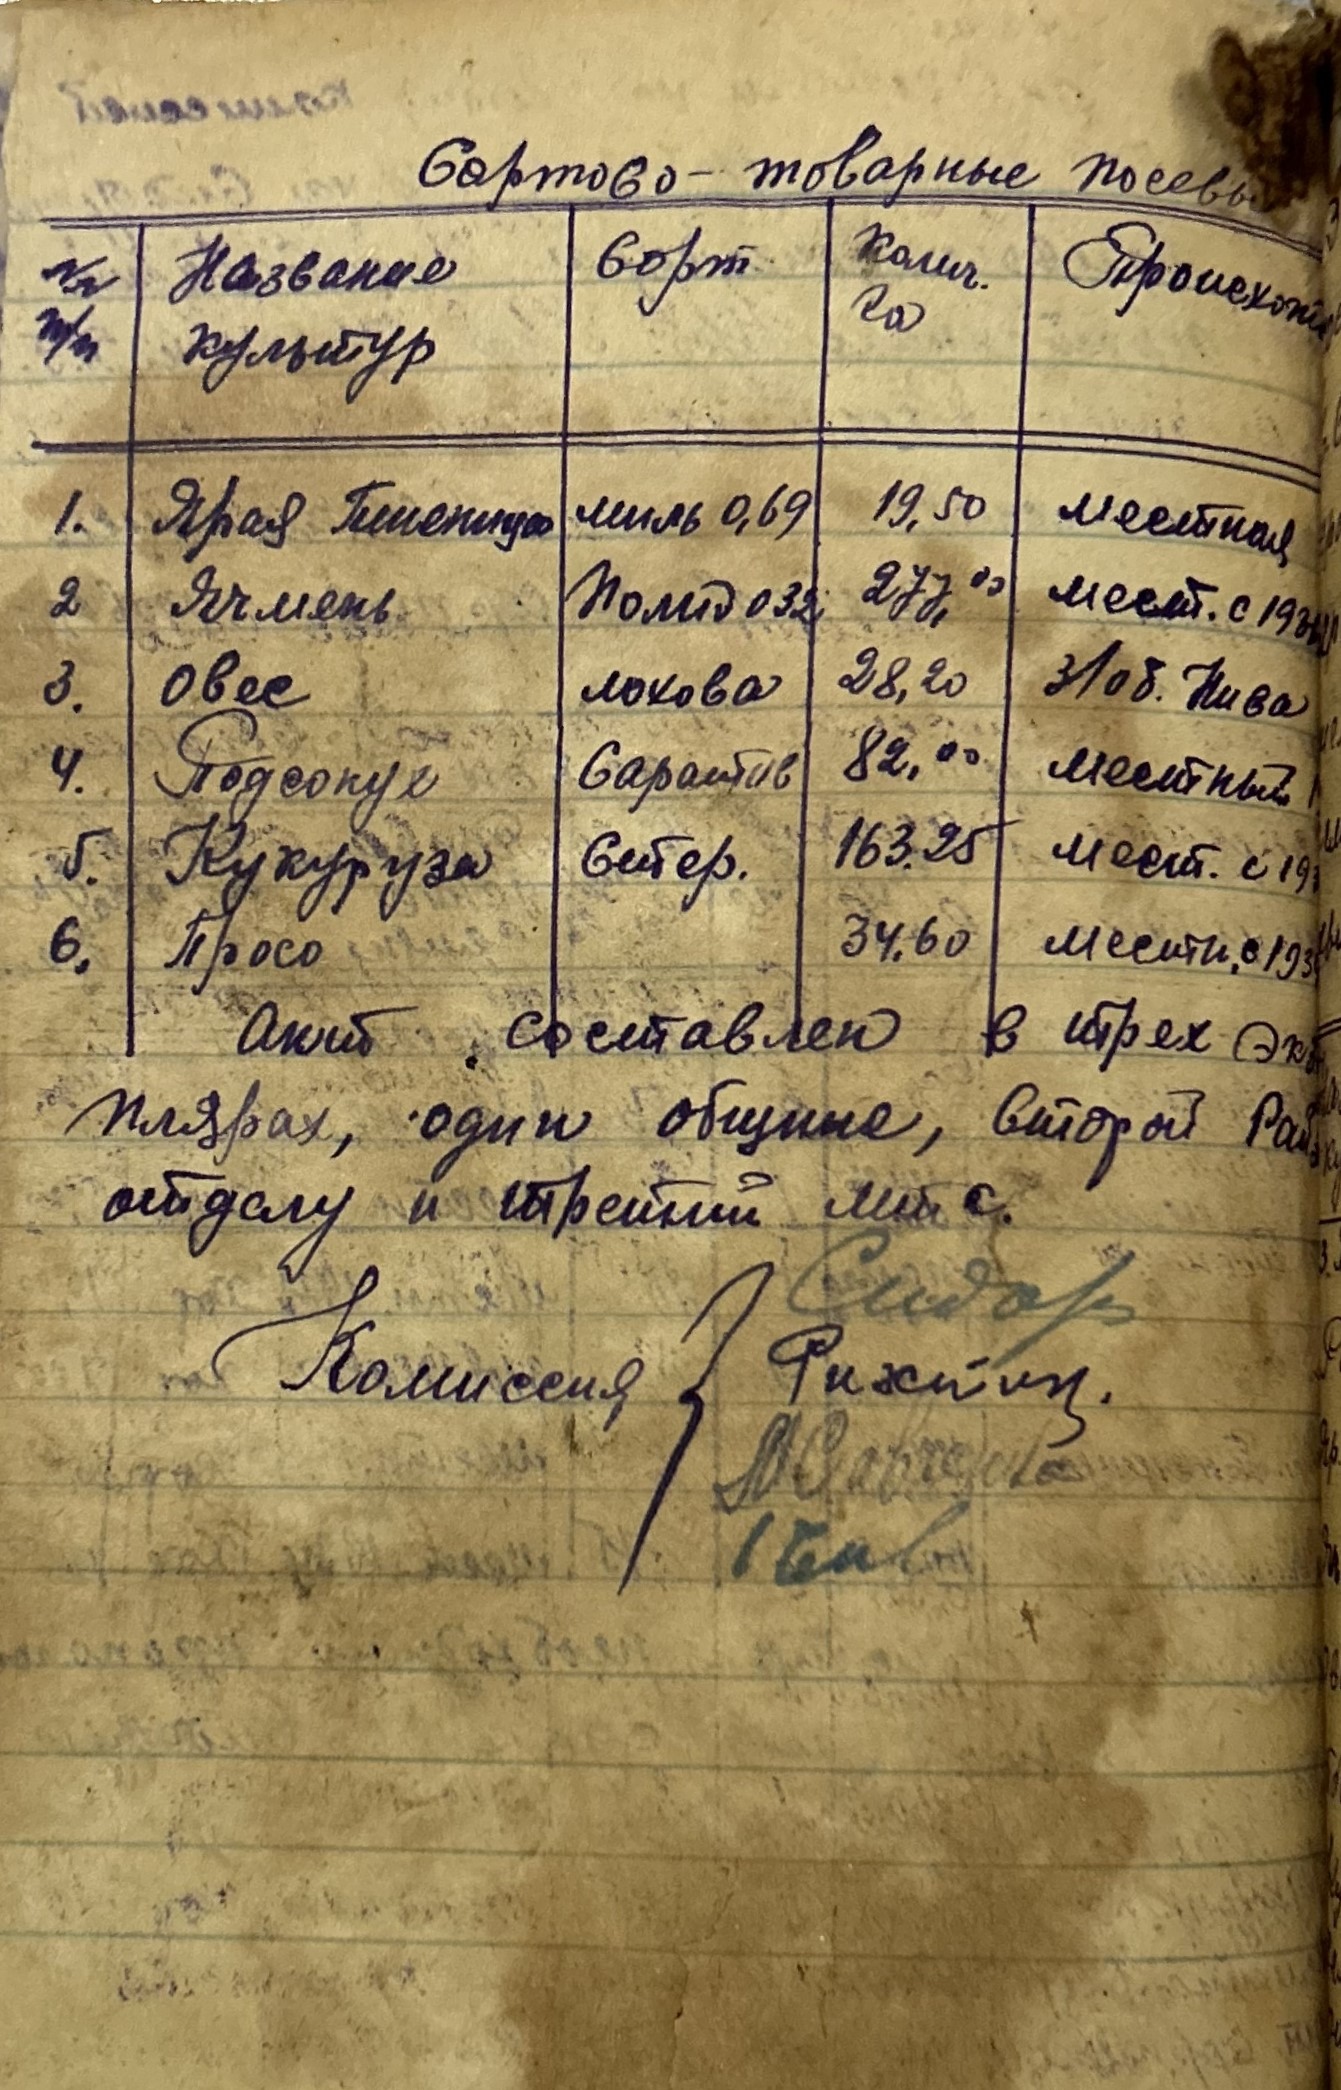 Сортово-товарные посевы
№ п/п Название культур Сорт Колич. га Происхожд
1. Ярая Пшеница миль 0,69 19,50 местная
2 Ячмень Полид 032 277,00 мест. с 193
3. Овес лохова 28,20 з/об. Нива
4. Подсонух Саратов 82,00 местный
5. Кукуруза Стер. 163.25 мест. с 19
6. Просо 34.60 местн. с 193
Акт составлен в трех Экз
плярах, один общине, второй Рай
отделу и третий мтс.
Комиссия Сидор